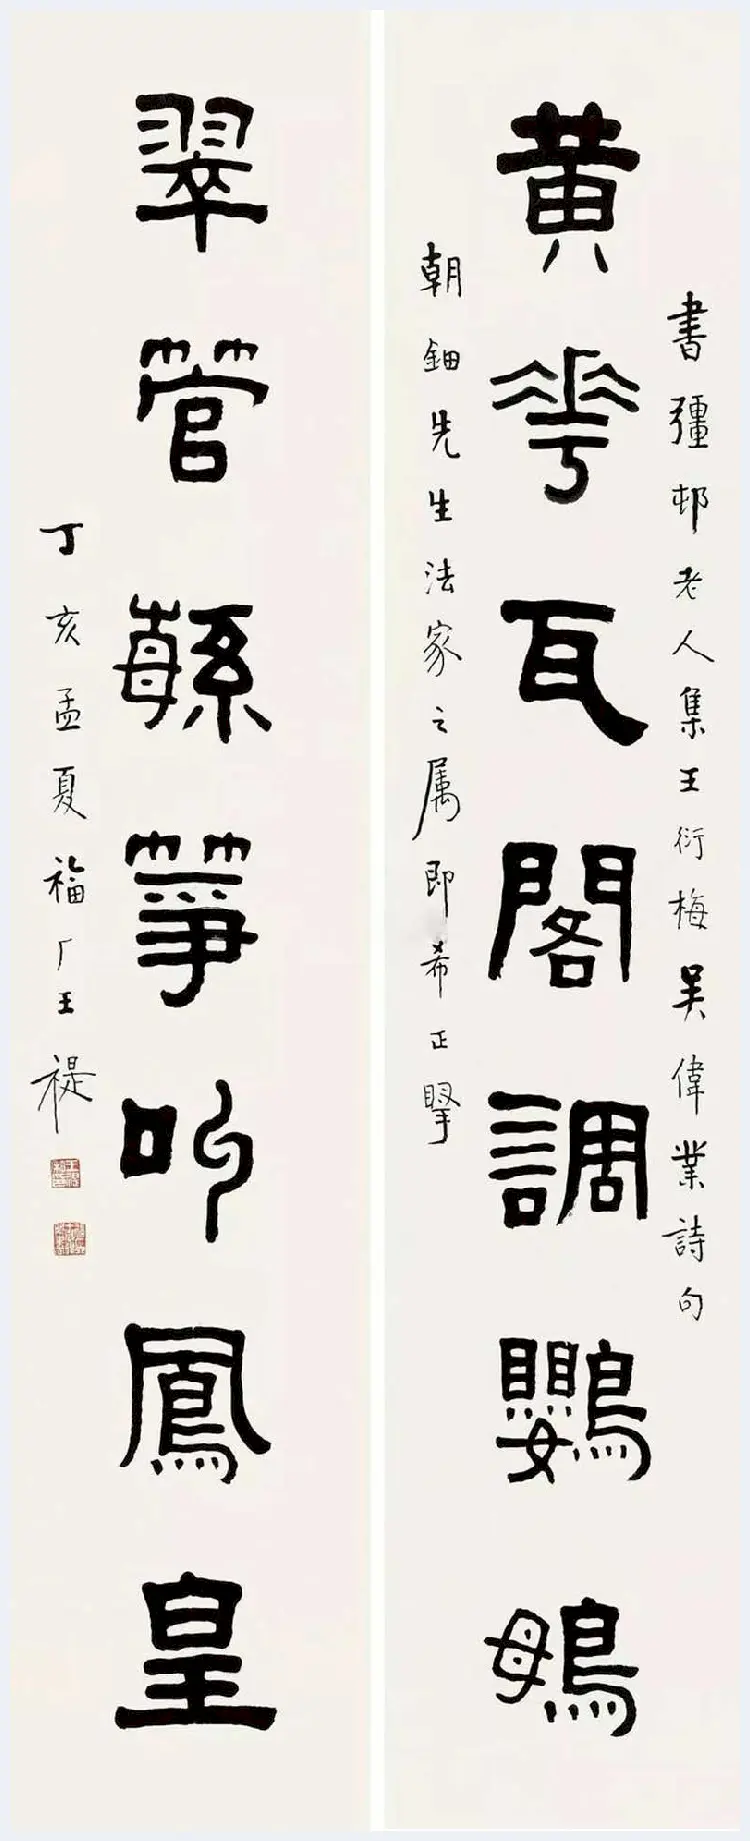 黄華瓦閣調鸚䳇
書彊邨老人集王衍梅吴偉業詩句
朝鈿先生法家之属即希正擘
翠管緐箏叫鳳皇
丁亥孟夏福厂王禔